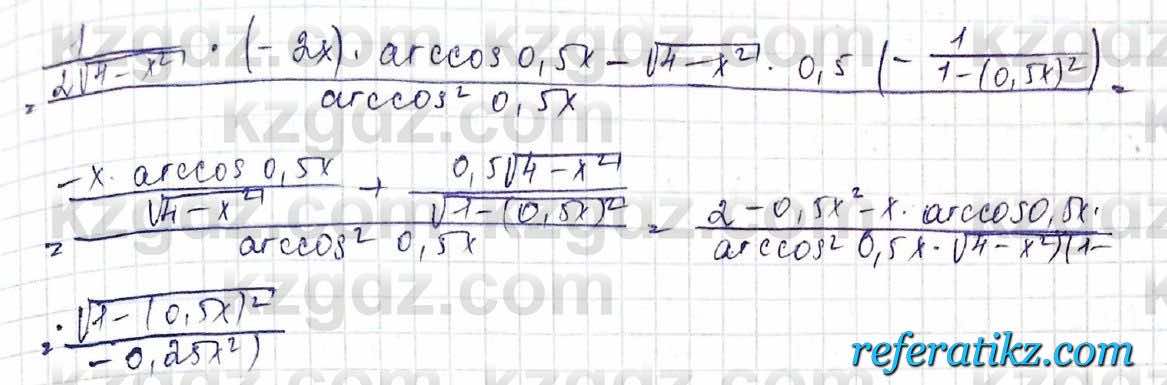 = (1/(2√(4-x²)) · (-2x) · arccos 0,5x - √(4-x²) · 0,5 (- 1/(1-(0,5x)²))) / (arccos² 0,5x) =
= ((-x · arccos 0,5x)/√(4-x²) + (0,5√(4-x²))/√(1-(0,5x)²)) / (arccos² 0,5x) = (2-0,5x²-x · arccos0,5x·) / (arccos² 0,5x · √(4-x²)(1-
= (·√(1-(0,5x)²)) / (-0,25x²)
kzgdz.com
referatikz.com